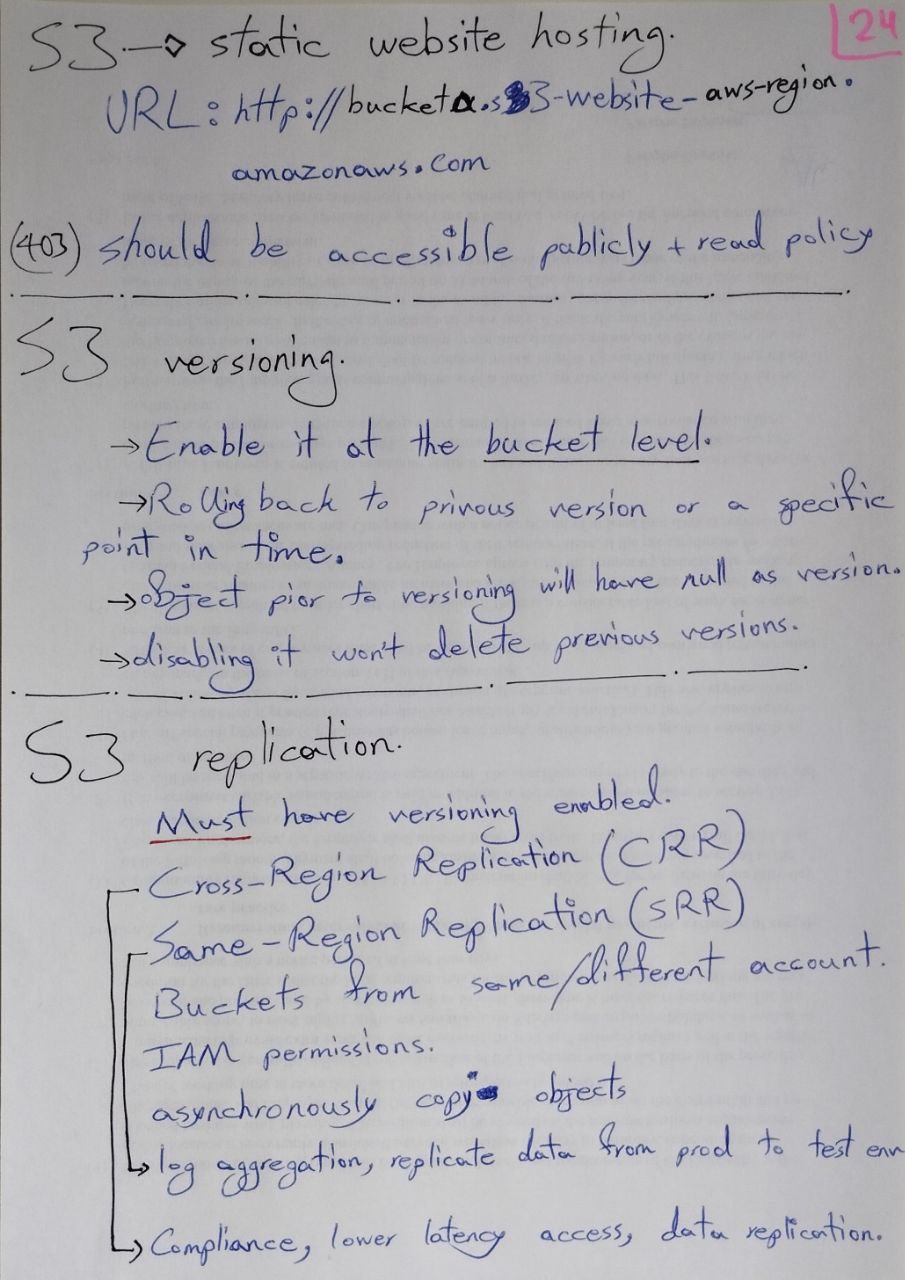 24
S3 → static website hosting.
URL: http://bucketa.s3-website-aws-region.
amazonaws.com
(403) should be accessible publicly + read policy
S3 versioning.
→ Enable it at the bucket level.
→ Rolling back to privous version or a specific
point in time.
→ object pior to versioning will have null as version.
→ disabling it won't delete previous versions.
S3 replication.
Must have versioning enabled.
Cross-Region Replication (CRR)
Same-Region Replication (SRR)
Buckets from same/different account.
IAM permissions.
asynchronously copy objects
→ log aggregation, replicate data from prod to test env
→ Compliance, lower latency access, data replication.